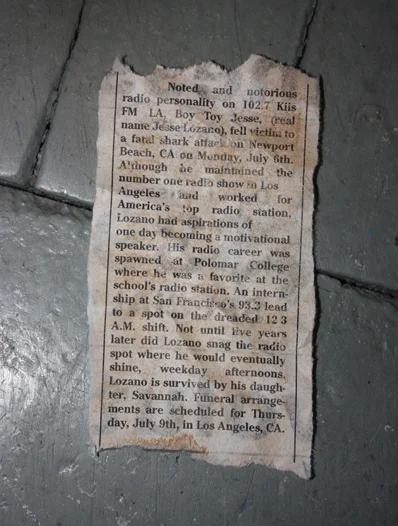 Noted, and notorious
radio personality on 102.7 Kiis
FM LA, Boy Toy Jesse, (real
name Jesse Lozano), fell victim to
a fatal shark attack on Newport
Beach, CA on Monday, July 6th.
Although he maintained the
number one radio show in Los
Angeles and worked for
America's top radio station,
Lozano had aspirations of
one day becoming a motivational
speaker. His radio career was
spawned at Polomar College
where he was a favorite at the
school's radio station. An intern-
ship at San Francisco's 93.3 lead
to a spot on the dreaded 12 3
A.M. shift. Not until five years
later did Lozano snag the radio
spot where he would eventually
shine, weekday afternoons.
Lozano is survived by his daugh-
ter, Savannah. Funeral arrange-
ments are scheduled for Thurs-
day, July 9th, in Los Angeles, CA.